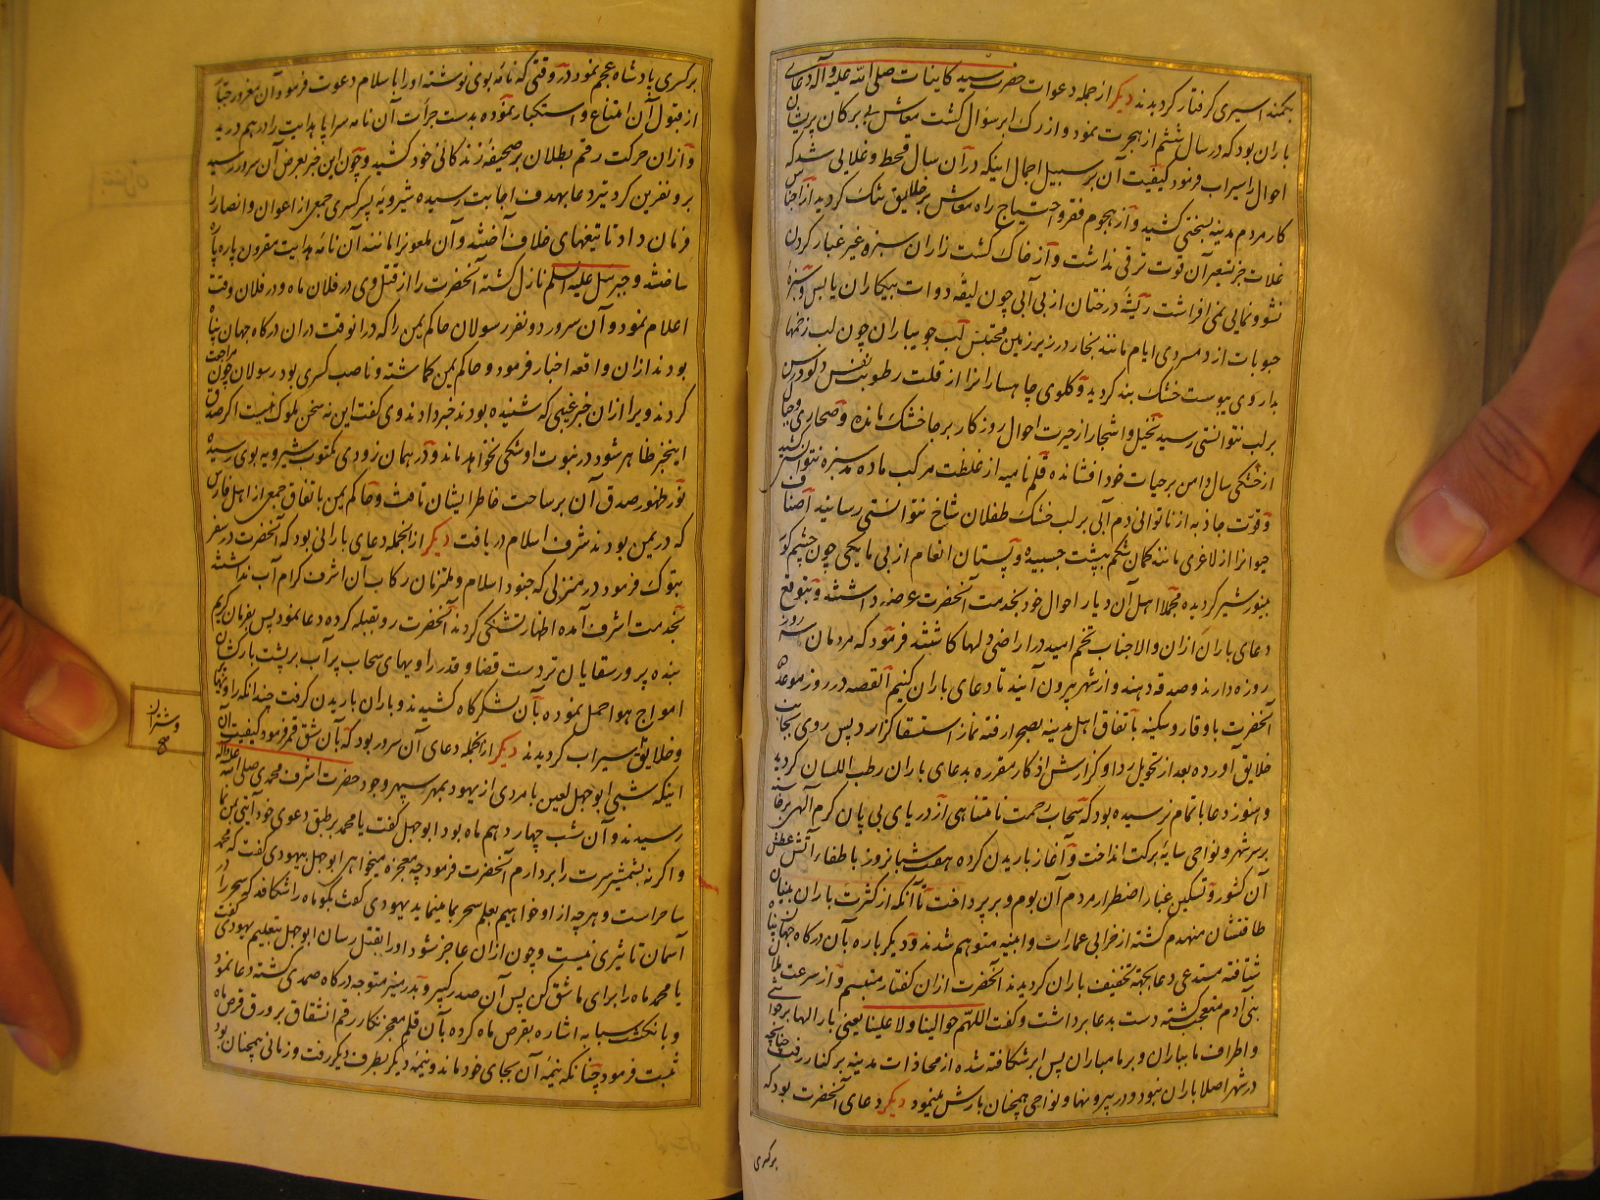 بکمند اسیری گرفتار گردیدند دیگر از جمله دعوات حضرت سید کاینات صلی الله علیه وآله دعای
باران بود که در سال ششم از هجرت نمود و از رک ابر سؤال کشت معاش بی برکان پریشان
احوال را سیراب فرمود کیفیت آن بر سبیل اجمال اینکه در آن سال قحط و غلایی شد که
کار مردم مدینه بسختی کشید و از هجوم فقر و احتیاج راه معاش بر خلایق تنک کردید از اجناس
غلات جز تسعیر آن قوت ترقی نداشت و از خاک کشت زاران سبزه غیر غبار کردن
نشو و نمایی نمی افراشت ریشهٔ درختان از بی آبی چون لیقه دوات بیکاران یابس و سبزهٔ
حبوبات از دمسردی ایام مانند بخار در زیر زمین محتبس لب جویباران چون لب زخمها
بداروی یبوست خشک بند کردید و کلوی چاهسارانرا از قلت رطوبت نفس دلو و رسن
بر لب نتوانستی رسید نخیل و اشجار از حیرت احوال روزکار بر جا خشک مانده و صحاری و جبال
از خشکی سال دامن بر حیات خود افشانده قلم نامیه از غلظت مرکب ماده مد سبزه نتوانستی کشید
و قوت جاذبه از ناتوانی دم آبی بر لب خشک طفلان شاخ نتوانستی رسانید اصناف
حیوانرا از لاغری مانند کمان شکم بپشت چسبیده و پستان انعام از بی مایکی چون چشم کور
بینور شیر کردیده مجملا اهل آن دیار احوال خود بخدمت آنحضرت عرضه داشتند و بتوقع
دعای باران ازان والاجناب تخم امید در اراضی دلها کاشتند فرمود که مردمان سه روز
روزه دارند و صدقه دهند و از شهر بیرون آیند تا دعای باران کنیم القصه در روز موعد
آنحضرت با وقار و سکینه باتفاق اهل مدینه بصحرا رفته نماز استسقا کزارد پس روی بجانب
خلایق آورده بعد از تحویل ردا و کزارش اذکار مقرره بدعای باران رطب اللسان کردید
و هنوز دعا باتمام نرسیده بود که سحاب رحمت نامتناهی از دریای بی پایان کرم آلهی برخاسته
بر سر شهر و نواحی سایه برکت انداخت و آغاز باریدن کرده هفت شبانروز باطفاء آتش عطش
آن کشور و تسکین غبار اضطرار مردم آن بوم و بر پرداخت تا آنکه از کثرت باران بنیان
طاقتشان منهدم کشته از خرابی عمارات و ابنیه متوهم شدند و دیکر باره بآن درکاه جهان پناه
شتافته مستدعی دعا بجهة تخفیف باران کردیدند آنحضرت ازان کفتار متبسم و از سرعت ملال
بنی آدم متعجب کشته دست بدعا برداشت و کفت اللهم حوالینا ولا علینا یعنی بار الها بر حوالی
و اطراف ما بباران و بر ما مباران پس ابر شکافته شده از محاذات مدینه بر کنار رفت چنانچه
در شهر اصلا باران نبود و در بیرونها و نواحی همچنان بارش مینمود دیکر دعای آنحضرت بود که
برکسری
برکسری پادشاه عجم نمود در وقتی که نامه بوی نوشته او را باسلام دعوت فرمود و آن مغرور جبار
از قبول آن امتناع و استکبار نموده بدست جرأت آن نامه سراپا هدایت را در هم درید
و ازان حرکت رقم بطلان بر صحیفهٔ زندکانی خود کشید و چون این خبر بعرض آن سرور رسید
برو نفرین کرد تیر دعا بهدف اجابت رسیده شیرویه پسر کسری جمعی از اعوان و انصار را
فرمان داد تا تیغهای خلاف آختند و آن ملعونرا مانند آن نامه هدایت مقرون پاره پاره
ساختند و جبرئیل علیه السلم نازل کشته آنحضرت را از قتل وی در فلان ماه و در فلان وقت
اعلام نمود و آن سرور دو نفر رسولان حاکم یمن را که در انوقت دران درکاه جهان پناه
بودند ازان واقعه اخبار فرمود و حاکم یمن کماشته و ناصب کسری بود رسولان چون مراجعت
کردند ویرا ازان خبر غیبی که شنیده بودند خبر دادند وی کفت این نه سخن ملوک نیست اکر صدق
اینخبر ظاهر شود در نبوت او شکی نخواهد ماند و در همان زودی مکتوب شیرویه بوی رسیده
نور ظهور صدق آن بر ساحت خاطر ایشان تافت و حاکم یمن باتفاق جمعی از اهل فارس
که در یمن بودند شرف اسلام دریافت دیکر از انجمله دعای بارانی بود که آنحضرت در سفر
تبوک فرمود در منزلی که جنود اسلام و ملتزمان رکاب آن اشرف کرام آب نداشتند
بخدمت اشرف آمده اظهار تشنکی کردند آنحضرت رو بقبله کرده دعا نمود پس بفرمان کریم
بنده پرور سقایان تردست قضا و قدر راویهای سحاب پر آب بر پشت بارکشان
امواج هوا حمل نموده بآن لشکرگاه کشیدند و باران باریدن کرفت چندانکه
و خلایق سیراب کردیدند دیکر از انجمله دعای آن سرور بود که بآن شق قمر فرمود کیفیت آن
و شتران
اینکه شبی ابوجهل لعین با مردی از یهود بمهر سپهر وجود حضرت اشرف محمدی صلی الله علیه وآله
رسیدند و آن شب چهاردهم ماه بود ابوجهل کفت یا محمد بر طبق دعوی خود آیتی بمن نما
و اکر نه بشمشیر سرت را بردارم آنحضرت فرمود چه معجزه میخواهی ابوجهل بیهودی کفت که محمد
ساحر است و هر چه از او خواهیم بعلم سحر بما مینماید یهودی کفت بکو ماه را شکافد که سحر را در
آسمان تاثیری نیست و چون ازان عاجز شود او را بقتل رسان ابوجهل بتعلیم یهودی کفت
یا محمد ماه را برای ما شق کن پس آن صدر کبیر و بدر منیر متوجه درکاه صمدی کشته دعا نمود
و بانکشت سبابه اشاره بقرص ماه کرده بآن قلم معجز نکار رقم انشقاق بر ورق قرص ماه
ثبت فرمود چنانکه نیمهٔ آن بجای خود ماند و نیمهٔ دیکر بطرف دیکر رفت و زمانی همچنان بود